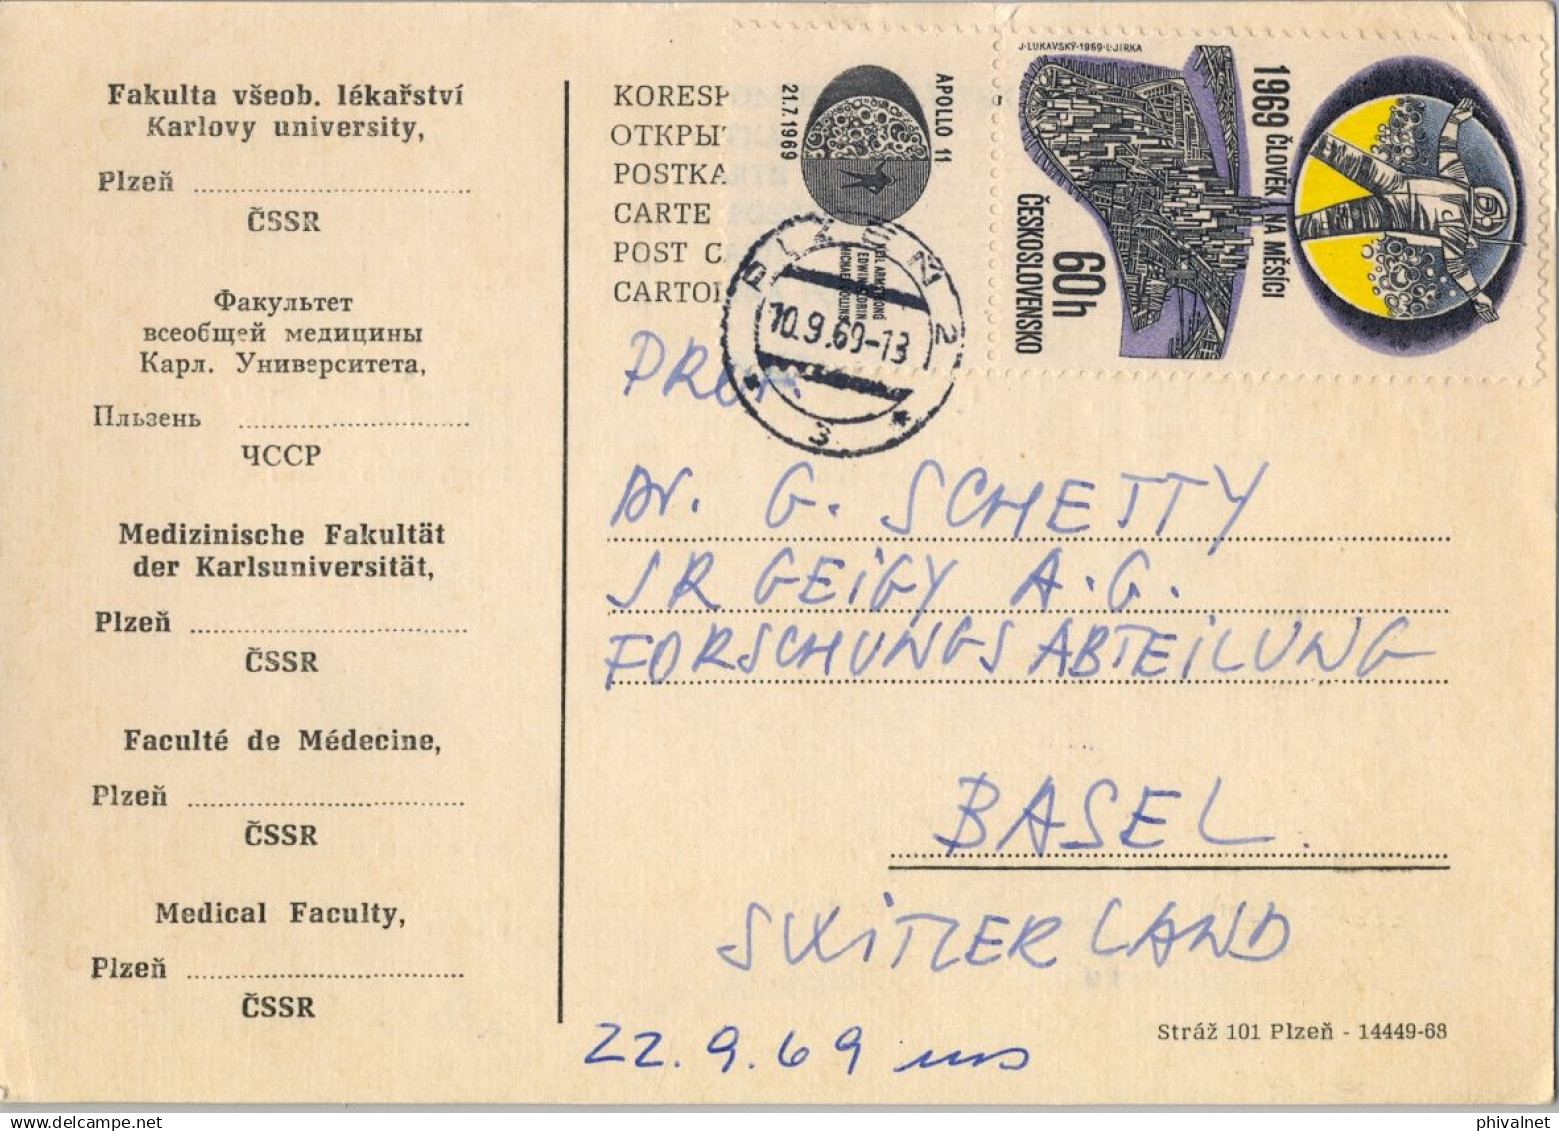 Fakulta všeob. lékařství
Karlovy university,
Plzeň
ČSSR
Факультет
всеобщей медицины
Карл. Университета,
Пльзень
ЧССР
Medizinische Fakultät
der Karlsuniversität,
Plzeň
ČSSR
Faculté de Médecine,
Plzeň
ČSSR
Medical Faculty,
Plzeň
ČSSR
KORESP
ОТКРЫТ
POSTKA
CARTE
POST C
CARTOL
APOLLO 11
21.7.1969
NEIL ARMSTRONG
EDWIN ALDRIN
MICHAEL COLLINS
J.LUKAVSKÝ-1969-L.JIRKA
1969 ČLOVĚK NA MĚSÍCI
60h
ČESKOSLOVENSKO
PLZEŇ 2
10.9.69-13
3
PROF.
Dr. G. SCHETTY
JR GEIGY A.G.
FORSCHUNGSABTEILUNG
BASEL.
SWITZERLAND
22.9.69
Stráž 101 Plzeň - 14449-68
phivalnet